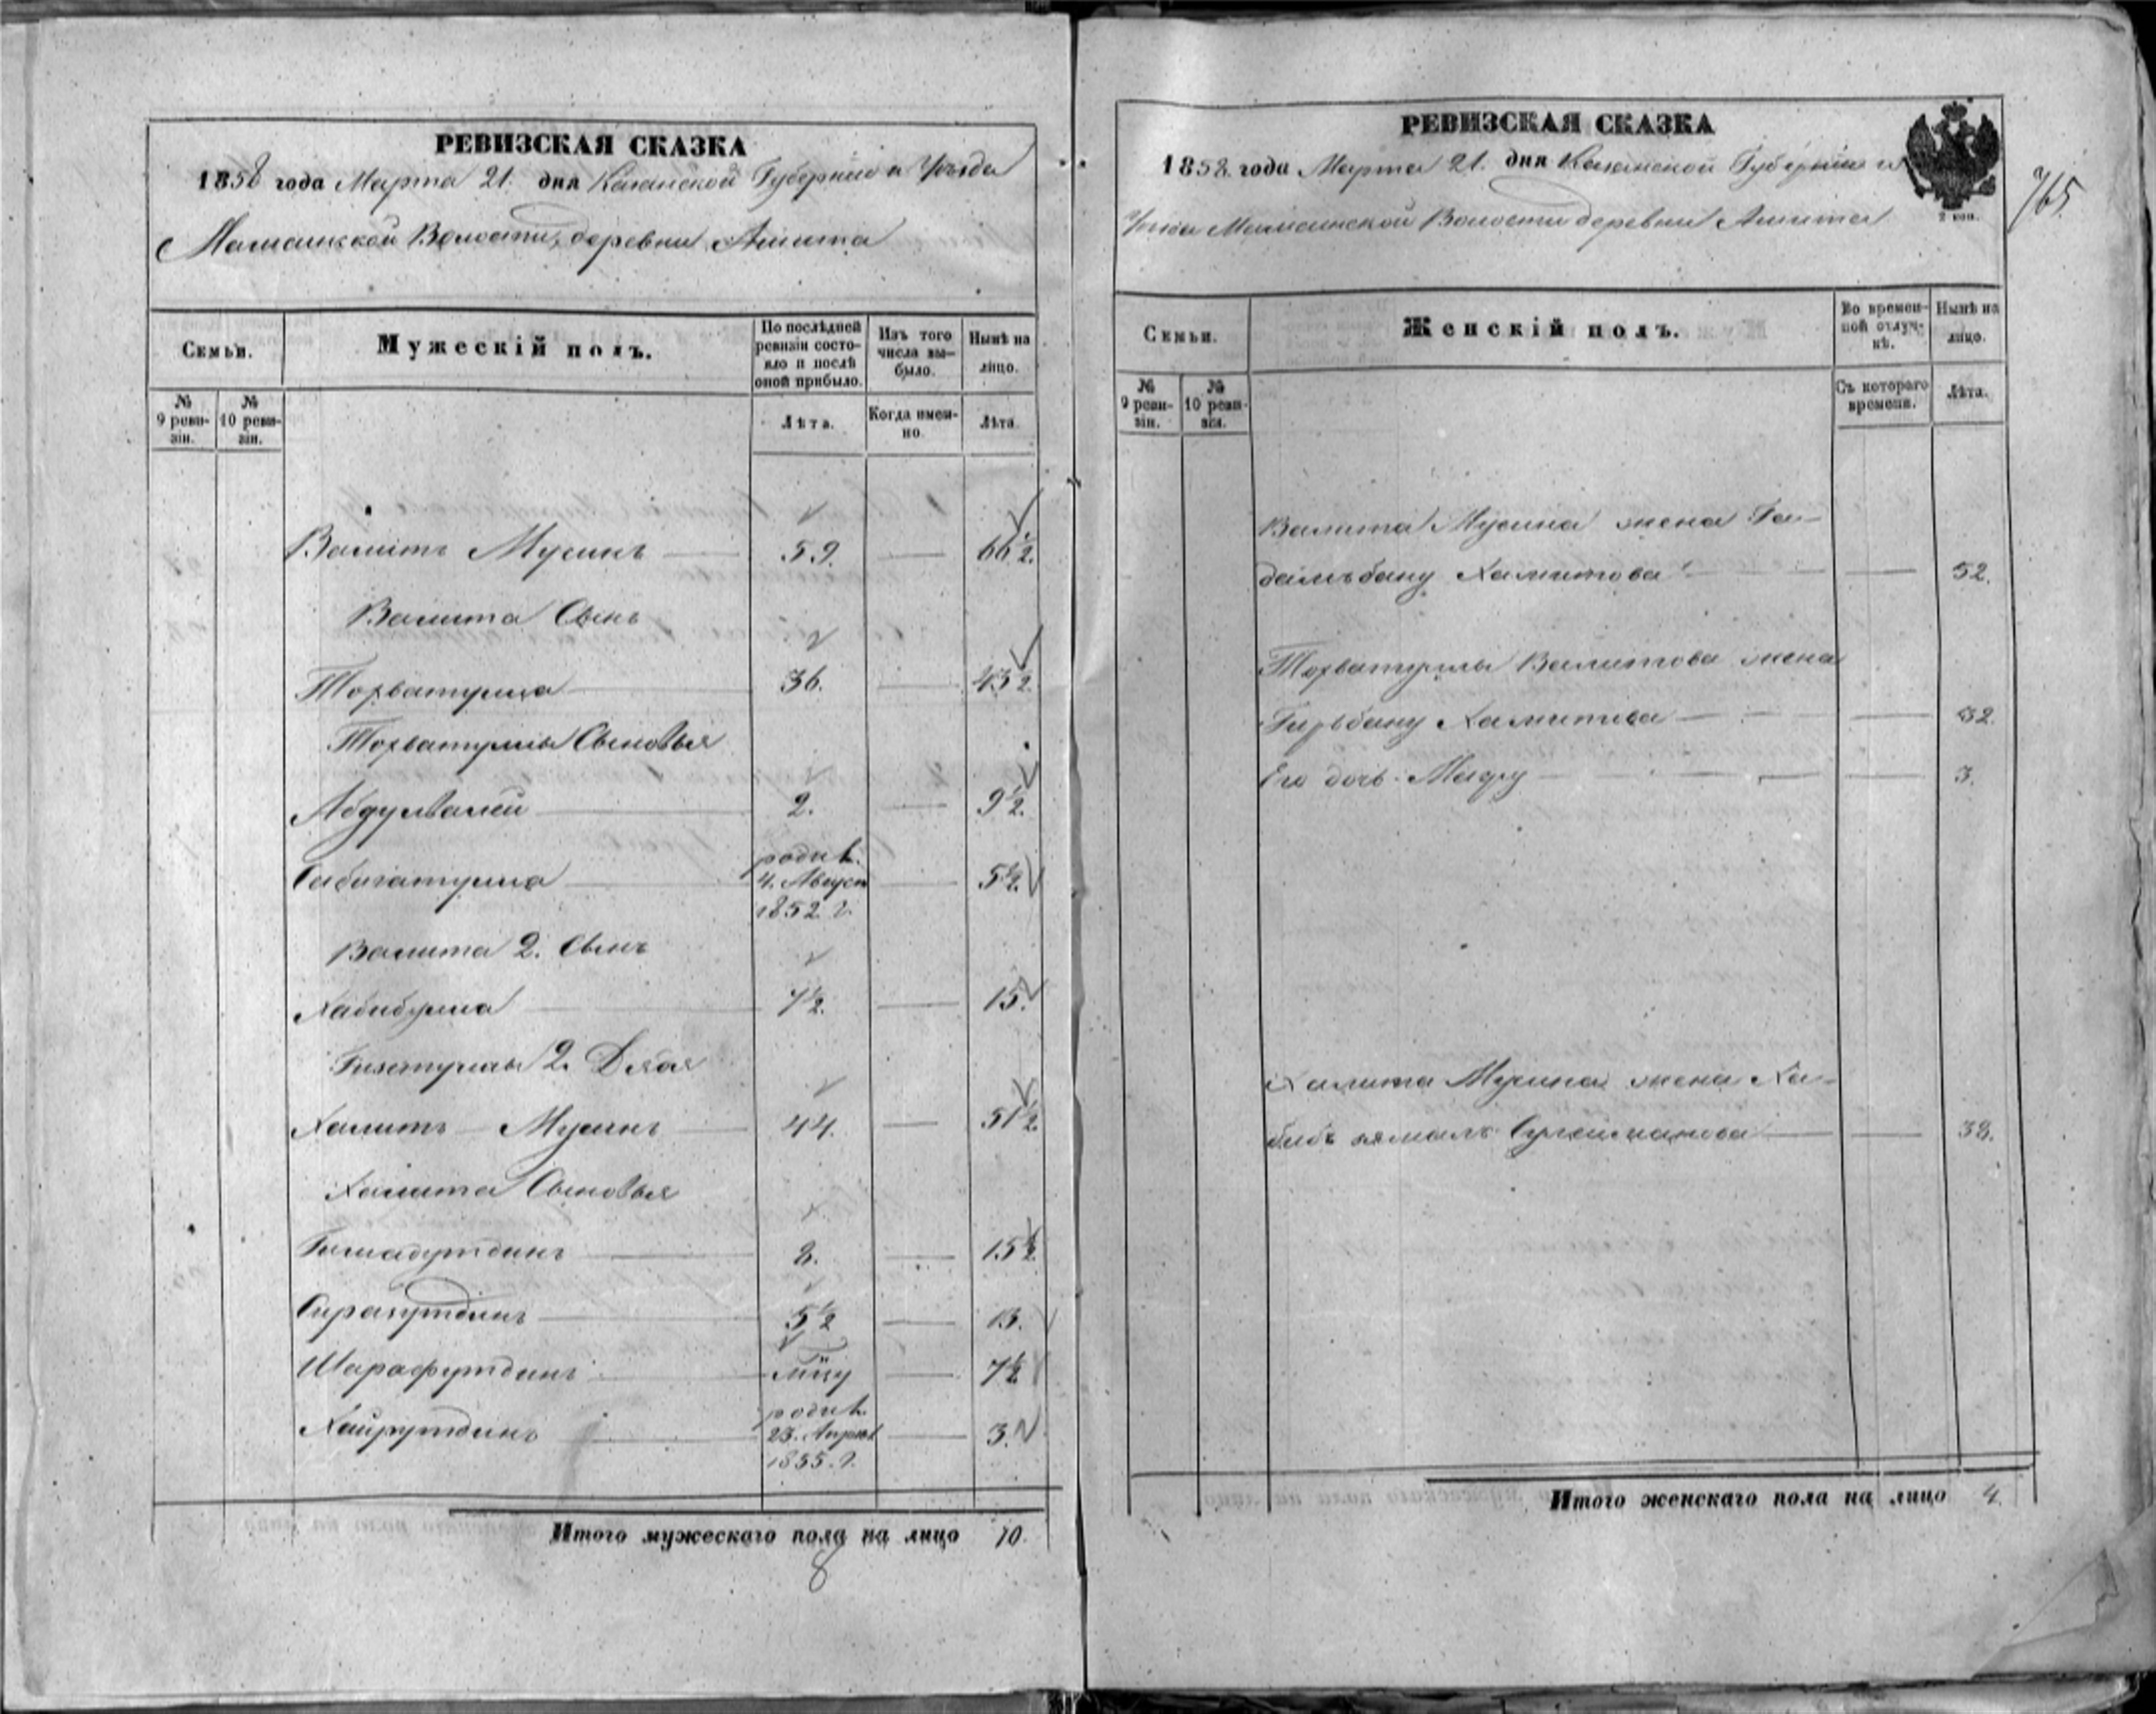 РЕВИЗСКАЯ СКАЗКА
1858 года Марта 21. дня Казанской Губернии и Уезда
Мамсинской Волости, деревни Ашита
Семьи.
Мужескій полъ.
По послѣдней ревизіи состояло и послѣ оной прибыло.
Изъ того числа выбыло.
Нынѣ на лицо.
№ 9 ревизіи.
№ 10 ревизіи.
Лѣта.
Когда именно.
Лѣта.
Валитъ Мусинъ 59. 66½.
Валита Сынъ
Тохватулла 36. 43½.
Тохватуллы Сыновья
Абдулвалей 2. 9½.
родил.
Сабигатулла 4. Август 5½.
1852 г.
Валита 2. Сынъ
Хабибулла 7½. 15.
2. Дядя
Халитъ Мусинъ 44. 51½.
Халита Сыновья
Гимадутдинъ 8. 15½
Сиразутдинъ 5½ 13.
Шарафутдинъ 7½
родил.
Хайрутдинъ 23. Апреля 3.
1855. г.
Итого мужескаго пола на лицо 10.
8
РЕВИЗСКАЯ СКАЗКА
1858. года Марта 21. дня Казанской Губернии и
Уезда Мамсинской Волости деревни Ашита
2 коп.
765.
Семьи.
Женскій полъ.
Во временной отлучкѣ.
Нынѣ на лицо.
№ 9 ревизіи.
№ 10 ревизіи.
Съ котораго времени.
Лѣта.
Валита Мусина жена
Халитова 52.
Тохватуллы Валитова жена
Халитова 32.
Его дочь 3.
Халита Мусина жена Ха-
бибъ зямалъ Сулейманова 38.
Итого женскаго пола на лицо 4.